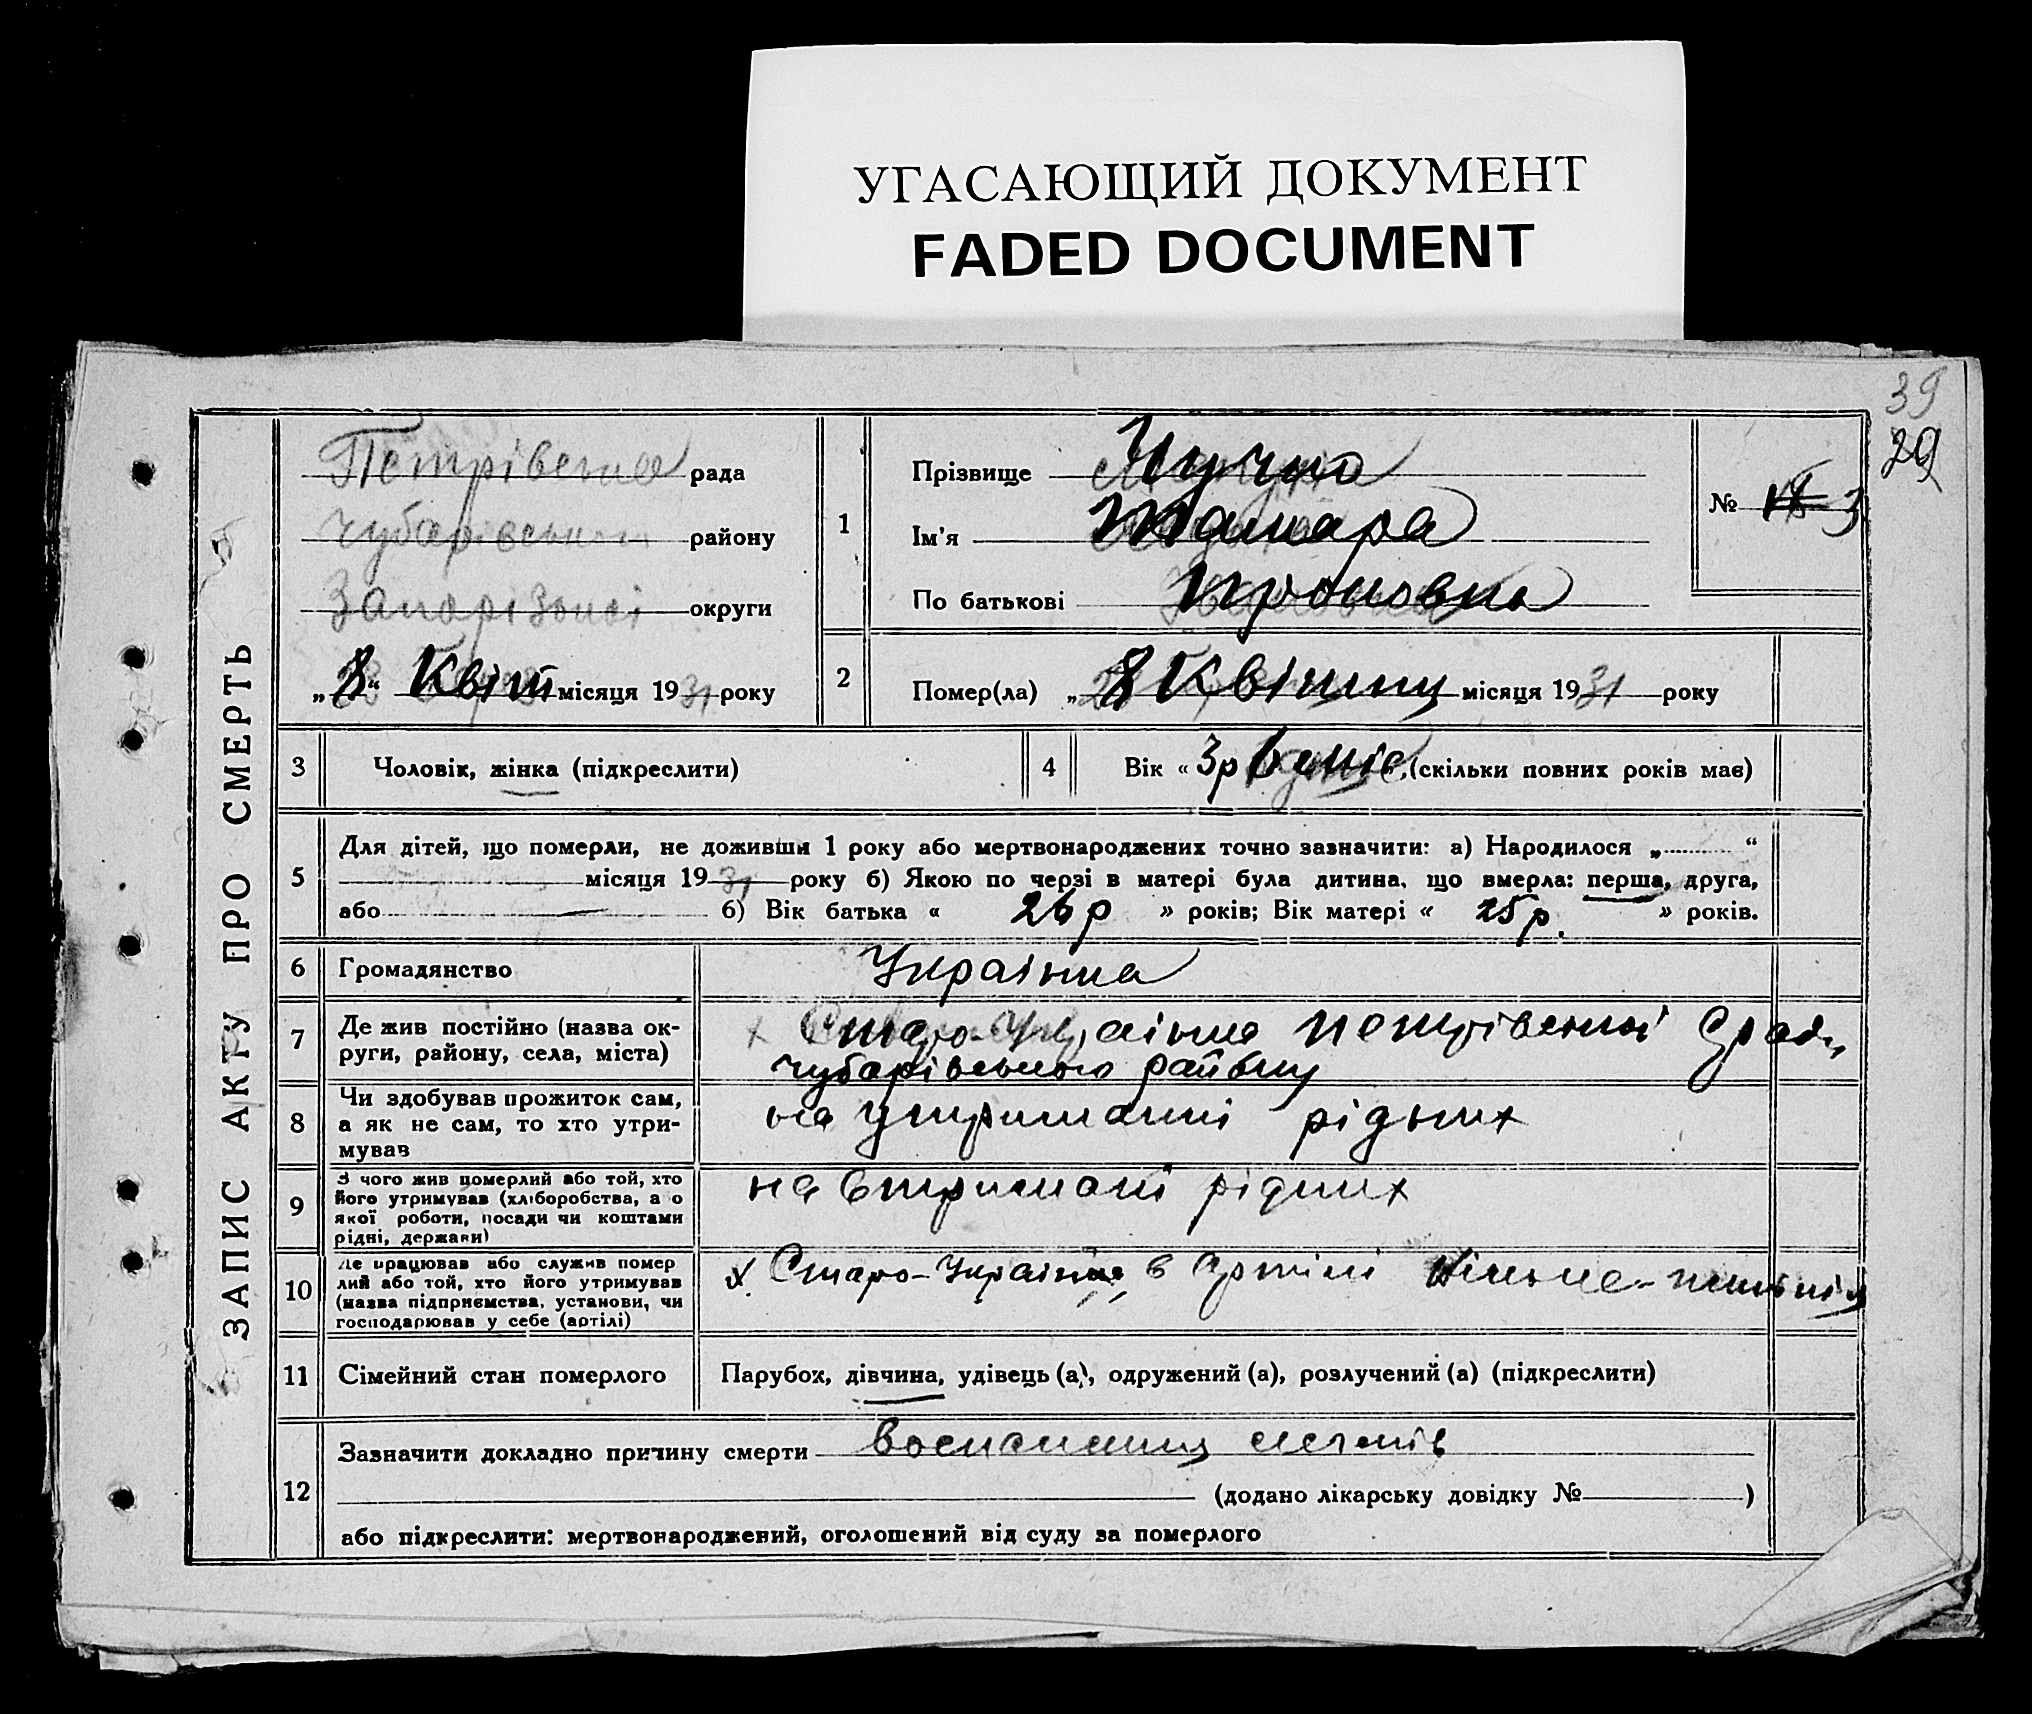 УГАСАЮЩИЙ ДОКУМЕНТ
FADED DOCUMENT
39
29
ЗАПИС АКТУ ПРО СМЕРТЬ
Петрівська рада
Чубарівськ району
Запорізькі округи
„8“ Квіт місяця 1931 року
1
Прізвище
Ім'я Тамара
По батькові
№ 3
2
Помер(ла) „8 Квітня місяця 1931 року
3
Чоловік, жінка (підкреслити)
4
Вік « 3р (скільки повних років має)
5
Для дітей, що померли, не доживши 1 року або мертвонароджених точно зазначити: а) Народилося „ “
місяця 1931 року б) Якою по черзі в матері була дитина, що вмерла: перша, друга,
або б) Вік батька « 26р » років; Вік матері « 25р. » років.
6
Громадянство
Українка
7
Де жив постійно (назва ок-
руги, району, села, міста)
Старо-Українка Петрівської Сради
Чубарівського району
8
Чи здобував прожиток сам,
а як не сам, то хто утри-
мував
на утриманні рідних
9
З чого жив померлий або той, хто
його утримував (хліборобства, а о
якої роботи, посади чи коштами
рідні, держави)
на втримані рідних
10
Де працював або служив помер
лий або той, хто його утримував
(назва підприємства, установи, чи
господарював у себе (артілі)
х Старо-Українка в Артілі
11
Сімейний стан померлого
Парубок, дівчина, удівець (а), одружений (а), розлучений (а) (підкреслити)
12
Зазначити докладно причину смерти
(додано лікарську довідку № )
або підкреслити: мертвонароджений, оголошений від суду за померлого